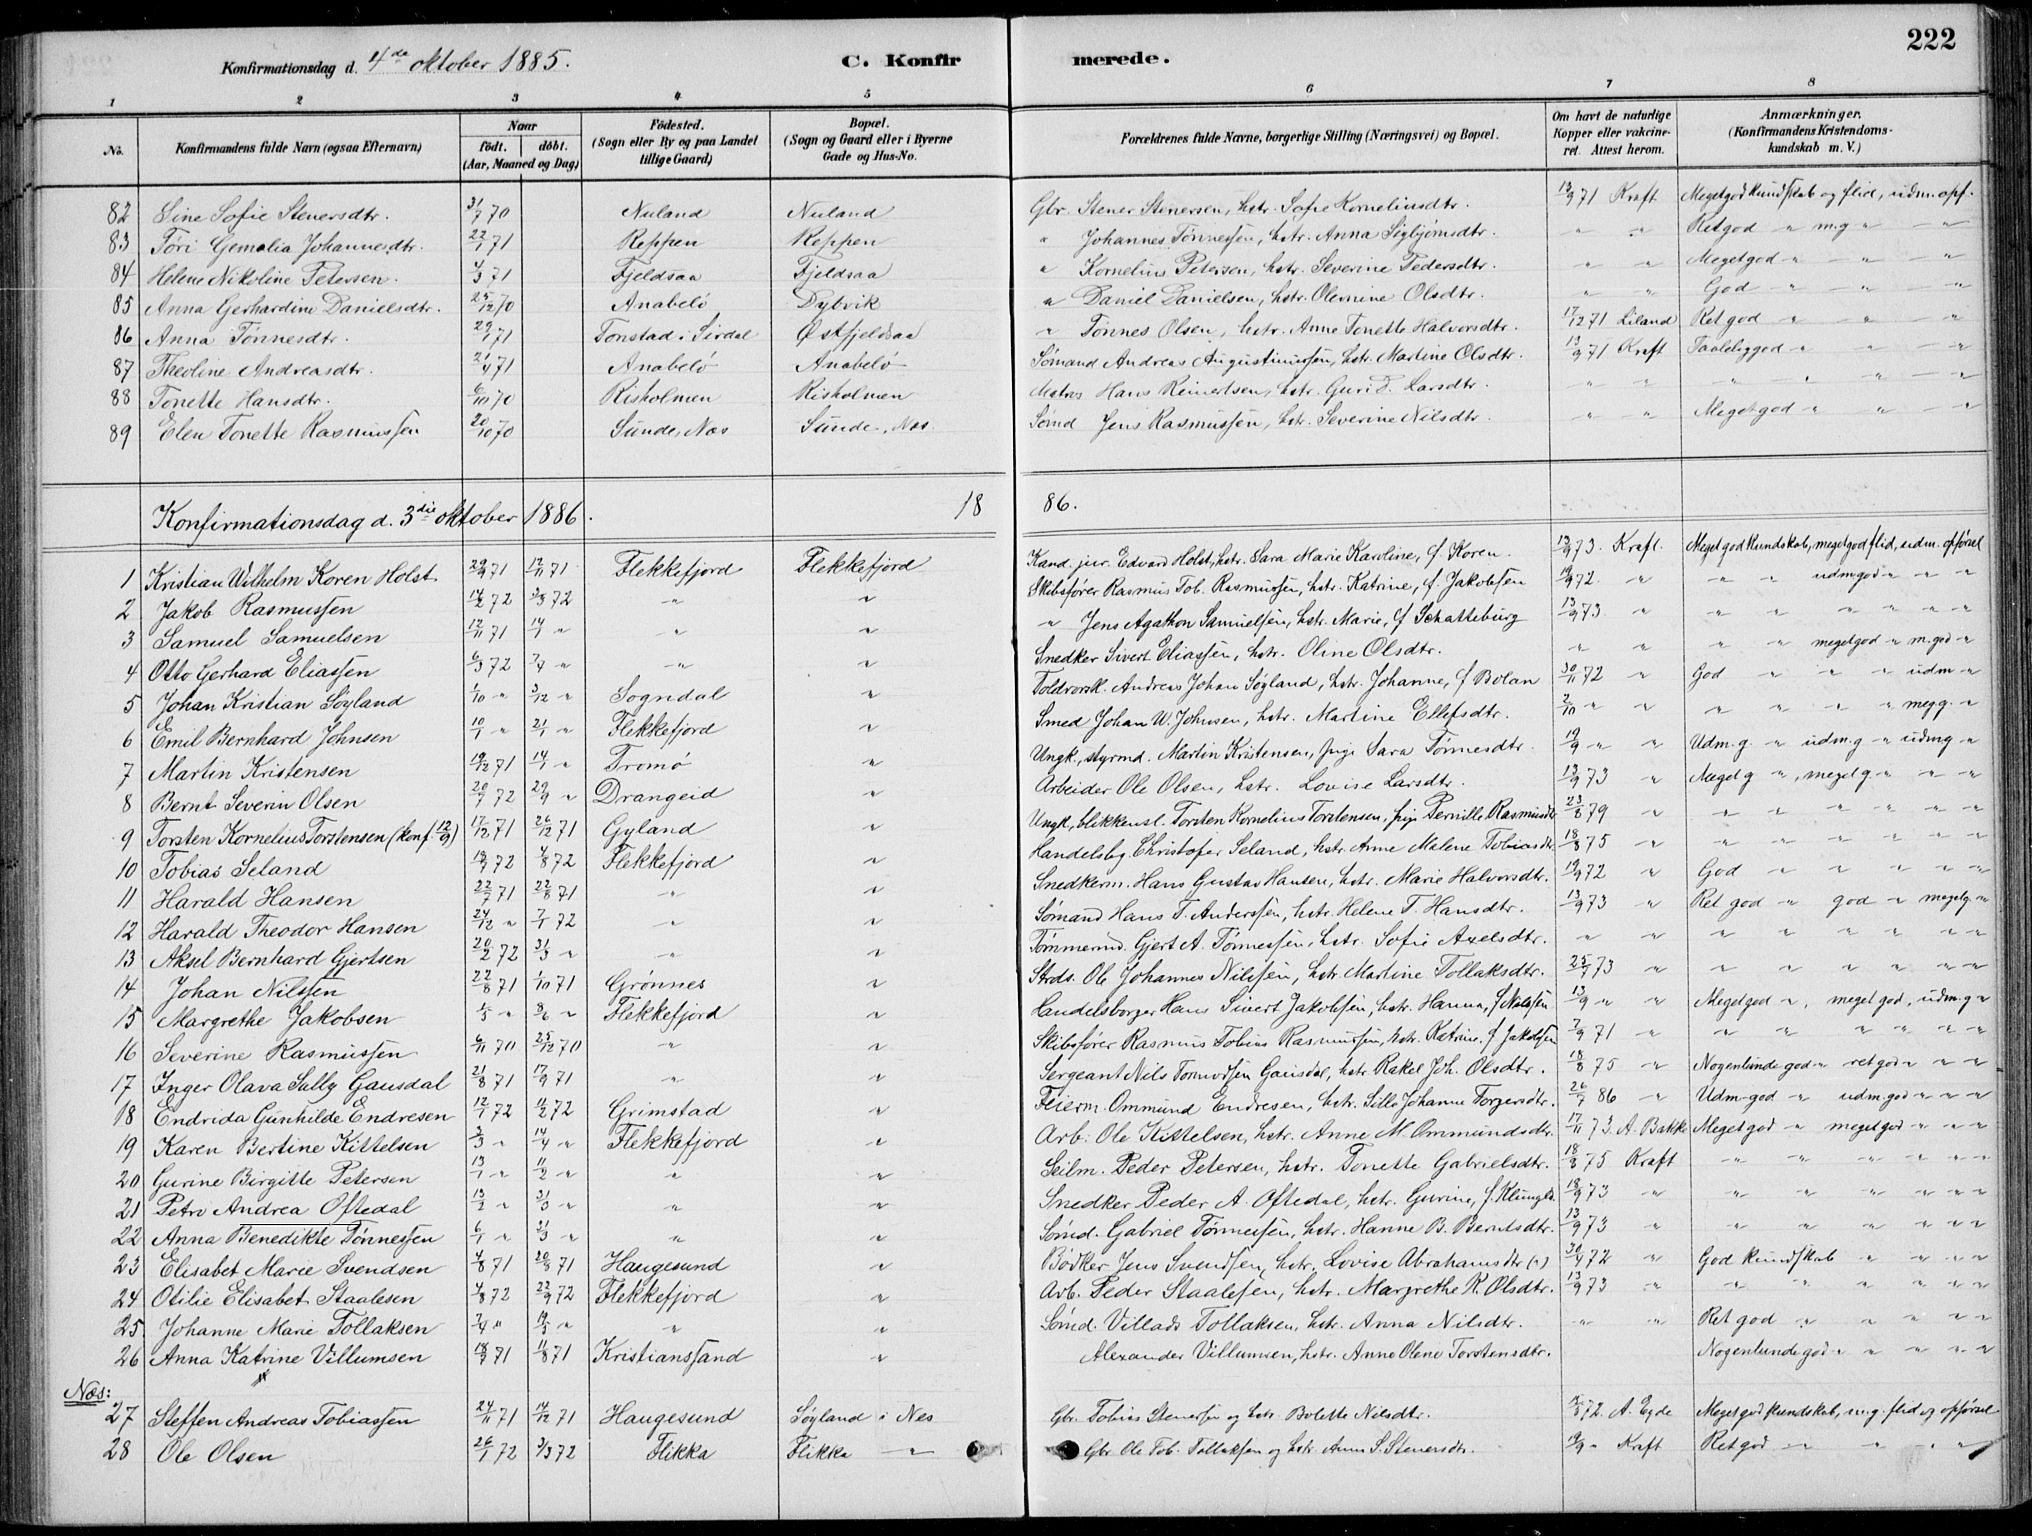 222
Konfirmationsdag d. 4de oktober 1885. C. Konfirmerede.
1 2 3 4 5 6 7 8
No. Konfirmandens fulde Navn (ogsaa Efternavn) Naar født. døbt. (Aar, Maaned og Dag) Fødested. (Sogn eller By og paa Landet tillige Gaard) Bopæl. (Sogn og Gaard eller i Byerne Gade og Hus-No. Forældrenes fulde Navne, borgerlige Stilling (Næringsvei) og Bopæl. Om havt de naturlige Kopper eller vakcineret. Attest herom. Anmærkninger. (Konfirmandens Kristendomskundskab m. V.)
82 Sine Sofie Stenersdtr. 31/7 70 Nuland Nuland Gbr. Stener Stenersen, hstr. Sofie Korneliusdtr. 13/9 71 Kraft Megetgod kundskab og flid, udm. opf.
83 Töri Gemalia Johannesdtr. 22/1 71 Reppen Reppen " Johannes Tønnessen, hstr. Anna Sigbjørnsdtr. " " Retgod " m.g " — "
84 Helene Nikoline Petersen. 4/3 71 Fjeldsaa Fjeldsaa " Kornelius Petersen, hstr. Severine Pedersdtr. " " Megetgod " — " — "
85 Anna Gerhardine Danielsdtr. 25/12 70 Anabelö Dybvik " Daniel Danielsen, hstr. Olevnine Olsdtr. " " God " " — "
86 Anna Tönnesdtr. 29/1 71 Tonstad i Sirdal Østfjeldsaa " Tönnes Olsen, hstr. Anne Tonette Halvorsdtr. 17/12 71 Liland Ret god " " — "
87 Theoline Andreasdtr. 21/4 71 Anabelö Anabelö Sömand Andreas Augustinussen, hstr. Martine Olsdtr. 13/9 71 Kraft Taaleliggod " " — "
88 Tonette Hansdtr. 6/10 70 Risholmen Risholmen Matros Hans Reinertsen, hstr. Guri T. Larsdtr. " " " " " — "
89 Elen Tonette Rasmussen 20/10 70 Sunde, Næs Sunde, Næs Sömd Jens Rasmussen, hstr. Severine Nilsdtr. " " Megetgod " " — "
Konfirmationsdag d. 3die oktober 1886. 18 86.
1 Kristian Wilhelm Koren Holst 29/9 71 12/11 71 Flekkefjord Flekkefjord Kand. jur. Edvard Holst, hstr. Sara Marie Karoline, f. Koren. 13/9 73. Kraft. Meget god kundskab, megetgod flid, udm. opførsel
2 Jakob Rasmussen 14/2 72 3/3 72 " " Skibsfører Rasmus Tob. Rasmussen, hstr. Katrine, f. Jakobsen 19/9 72. " " " udm.god " " "
3 Samuel Samuelsen 12/11 71 14/1 " " " " Jens Agathon Samuelsen, hstr. Marie, f Schatteburg 13/9 73 " " " " " " "
4 Otto Gerhard Eliassen 6/3 72 7/4 " " " Snedker Sivert Eliassen, hstr. Oline Olsdtr. " " " " megetgod " m.god "
5 Johan Kristian Søyland 1/10 " 3/12 " Sogndal " Andreas Johan Søyland, hstr. Johanne, f Bolan 30/11 72 " God " " " udm "
6 Emil Bernhard Johnsen 10/1 " 21/1 " Flekkefjord " Smed Johan W. Johnsen, hstr. Martine Ellefsdtr. 2/10 " " " " " " megg. "
7 Martin Kristensen 19/12 71 14/1 " Tromø " Ungk., styrmd. Martin Kristensen, pige Sara Tønnesdtr. 19/9 " " Udm.g. " udm.g " udmg "
8 Bernt Severin Olsen 20/7 72 29/9 " Drangeid " Arbeider Ole Olsen, hstr. Lovise Larsdtr. 13/9 73 " Meget g ", meget g. " " "
9 Torsten Kornelius Torstensen (konf. 12/9) 17/12 71 26/12 71 Gyland " Ungk., blikkensl. Torsten Kornelius Torstensen, pige Pernille Rasmusdtr 23/8 79 " " " " " " "
10 Tobias Seland 19/7 72 4/8 72 Flekkefjord " Handelsbg. Christofer Seland, hstr. Anne Malene Tobiasdtr 18/8 75 " " " " " " "
11 Harald Hansen 22/7 71 22/8 71 " " Snedkerm. Hans Gustav Hansen, hstr. Marie Halvorsdtr. 19/9 72 " God " " " " "
12 Harald Theodor Hansen 24/12 " 7/1 72 " " Sömand Hans T. Anderssen, hstr. Helene T. Hansdtr. 13/9 73 " Ret god " god " megetg. "
13 Aksel Bernhard Gjertsen 20/2 72 31/3 " " " Tømmermd. Gjert A. Tønnessen, hstr. Sofie Axelsdtr. " " " " " " " "
14 Johan Nilssen 22/8 71 1/10 71 Grønnes " Strds. Ole Johannes Nilssen, hstr. Martine Tollaksdtr. 25/7 73 " " " " " " "
15 Margrethe Jakobsen 1/5 " 8/6 " Flekkefjord " Handelsborger Hans Sivert Jakobsen, hstr. Hanna, f Nilssen 13/9 " " Megetgod ", meget god, udm.g "
16 Severine Rasmussen 6/11 70 25/12 70 " " Skibsfører Rasmus Tobias Rasmussen, hstr. Katrine, f Jakobsen 7/9 71 " " " " " " "
17 Inger Olava Sally Gausdal 21/8 71 17/9 71 " " Sergeant Nils Tormodsen Gausdal, hstr Rakel Joh. Olsdtr. 18/8 75 " Nogenlunde god " retgod " " "
18 Endrida Gunhilde Endresen 12/1 72 11/2 72 Grimstad " Feierm. Ommund Endresen, hstr. Silla Johanne Torgersdtr. 26/7 86 " Udm-god " udm.god " " "
19 Karen Bertine Kittelsen 3/3 " 14/4 " Flekkefjord " Arb. Ole Kittelsen, hstr. Anne M. Ommundsdtr. 17/11 73. A. Bakke Megetgod " megetgod " " "
20 Gurine Birgitte Petersen 13/1 " 11/2 " " " Seilm. Peder Petersen, hstr. Tonette Gabrielsdtr. 18/8 75 Kraft " " " " " "
21 Petri Andrea Oftedal 13/2 " 31/3 " " " Snedker Peder A. Oftedal, hstr. Gurine, f. 18/9 73 " " " " " " "
22 Anna Benedikte Tønnessen 6/1 " 31/3 " " " Sömd. Gabriel Tønnessen, hstr. Hanne B. Berntsdtr. 13/9 73 " " " " " " "
23 Elisabet Marie Svendsen 4/8 71 20/8 71 Haugesund " Bødker Jens Svendsen, hstr. Lovise Abrahamsdtr (") 30/4 72 " God kundskab " " " "
24 Otilie Elisabet Staalesen 4/8 72 22/9 72 Flekkefjord " Arb. Peder Staalesen, hstr. Margrethe R. Olsdtr. 13/9 73 " " " " " " "
25 Johanne Marie Tollaksen 7/4 " 19/5 " " " Sömd. Villads Tollaksen, hstr. Anna Nilsdtr. " " Ret god " " " " "
26 Anna Katrine Villumsen 18/7 71 11/8 71 Kristianssand " Alexander Villumsen, hstr. Anne Olene Torstensdtr. Nogenlunde god " " " " "
Næs:
27 Steffen Andreas Tobiassen 24/11 71 14/12 71 Haugesund Søyland i Nes Gbr. Tobias Stenersen og hstr. Bolette Nilsdtr. 2/8 72. A. Egde Megetgod kundskab, m.g. flid og opførsel
28 Ole Olsen 26/1 72 3/3 72 Flikka Flikka — " — Gbr Ole Tob. Tollaksen og hstr. Anne S. Stenersdtr. 19/9 " Kraft Retgod — " — " " "